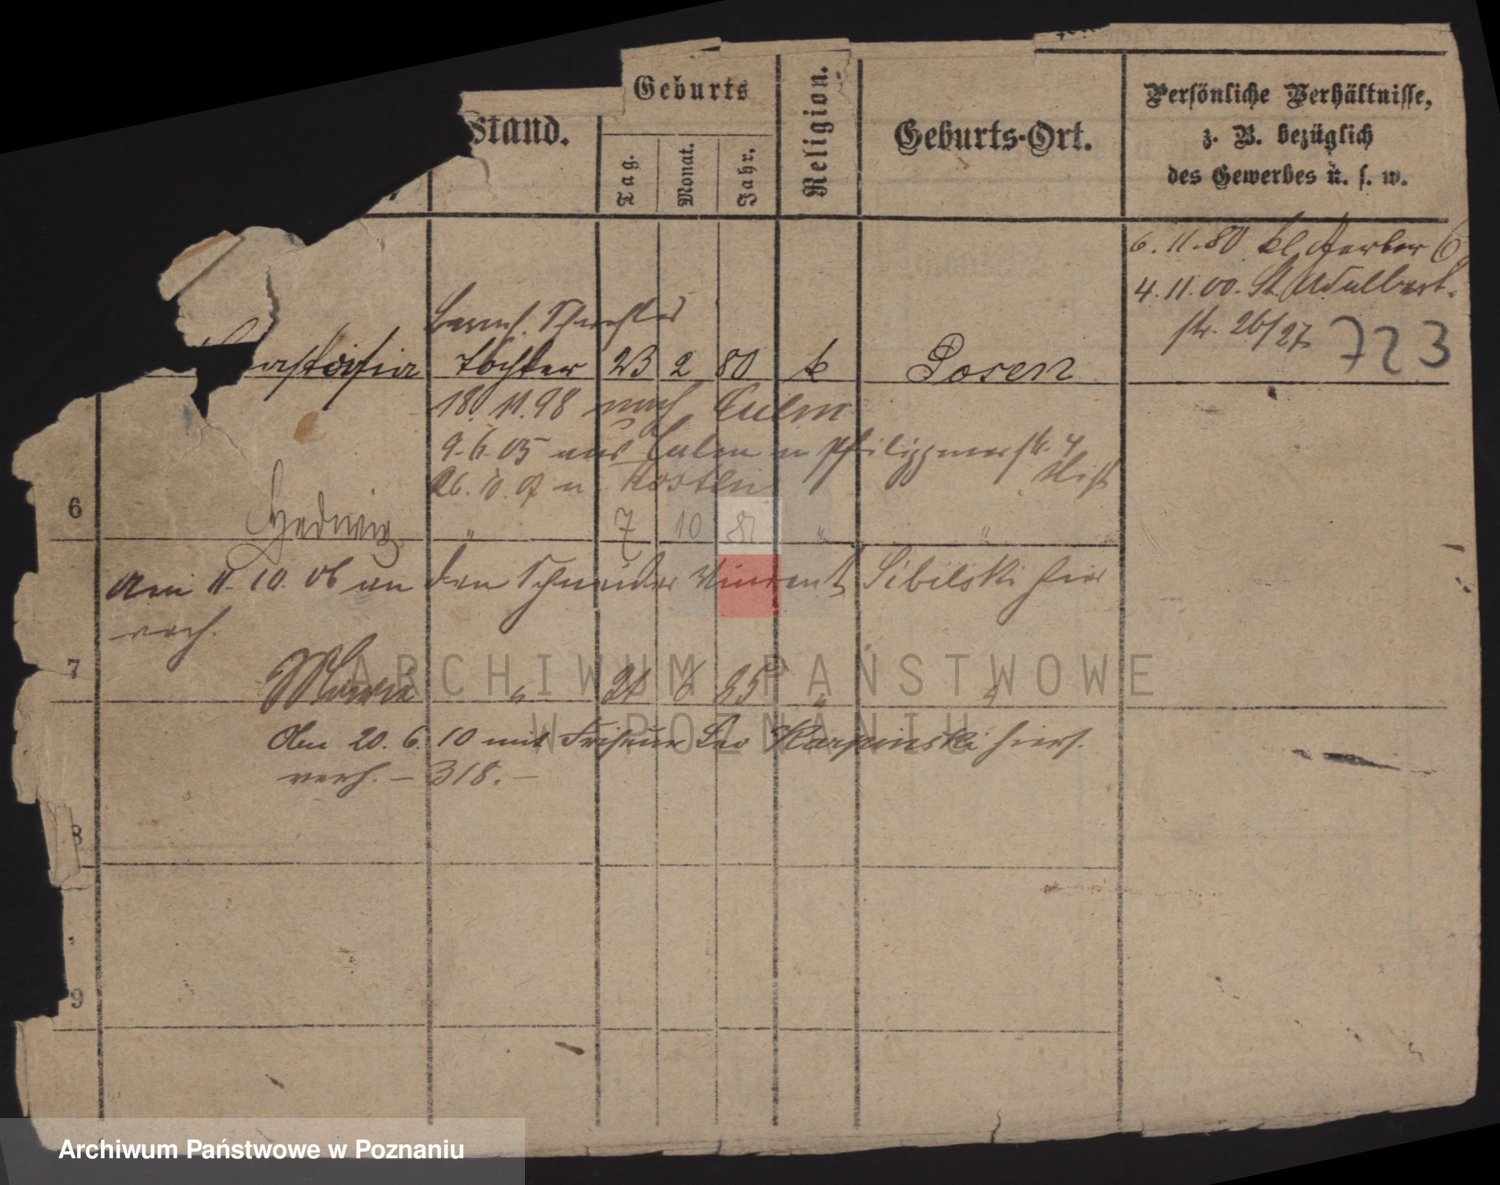 stand.
Geburts
Tag.
Monat.
Jahr.
Religion.
Geburts-Ort.
Persönliche Verhältnisse,
z. B. bezüglich
des Gewerbes u. s. w.
6. 11. 80 kl Gerber 6
4. 11. 00. St. Adalbert-
str. 26/27
723
Tochter 23 2 80 k Posen
18. 11. 98 nach Culm
9. 6. 05 aus Culm n Philippinerstr. 4
n. Kosten
6 Hedwig " 7 10 81 " "
Am 11. 10. 06 an den Schneider Vincent Sibilski hier
verh.
7 Maria " 21 6 85 " "
Am 20. 6. 10 mit Friseur Leo Karpinski hier
verh. – 318. –
8
9
ARCHIWUM PAŃSTWOWE
W POZNANIU
Archiwum Państwowe w Poznaniu